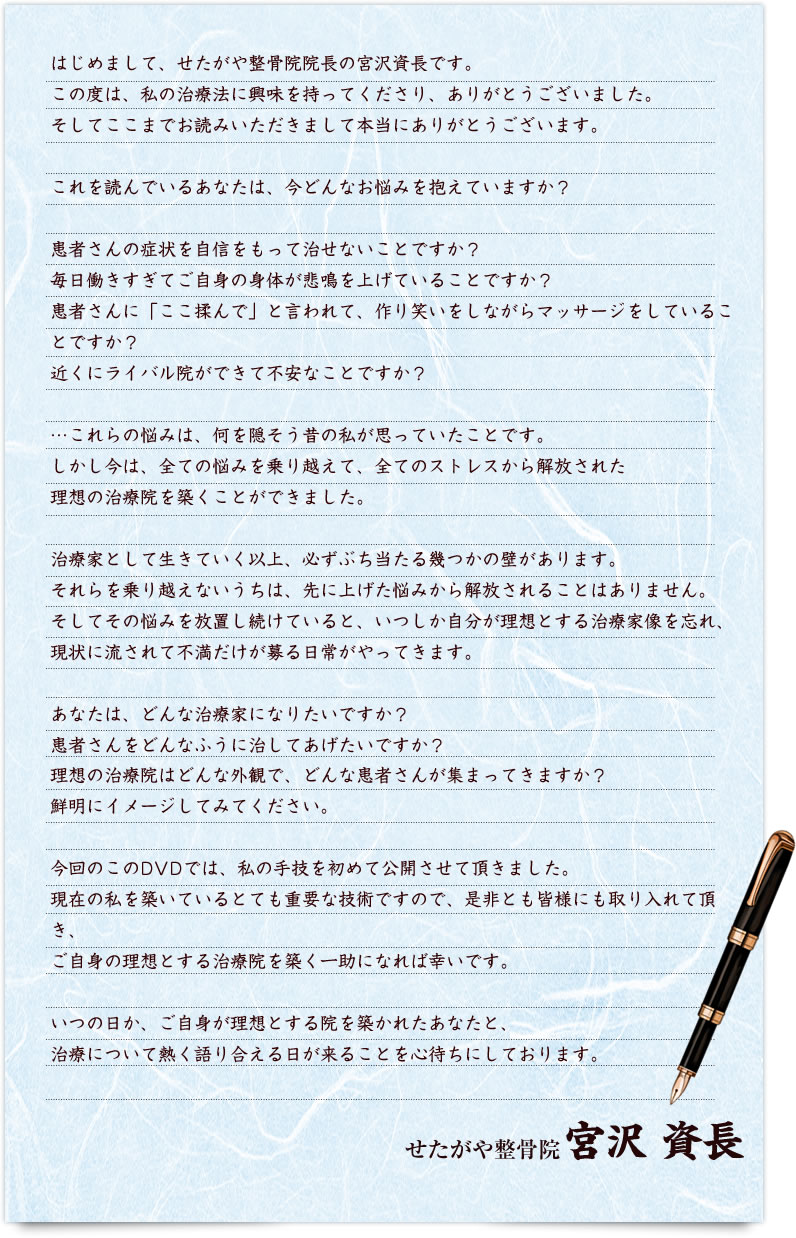 はじめまして、せたがや整骨院院長の宮沢資長です。
この度は、私の治療法に興味を持ってくださり、ありがとうございました。
そしてここまでお読みいただきまして本当にありがとうございます。
これを読んでいるあなたは、今どんなお悩みを抱えていますか？
患者さんの症状を自信をもって治せないことですか？
毎日働きすぎてご自身の身体が悲鳴を上げていることですか？
患者さんに「ここ揉んで」と言われて、作り笑いをしながらマッサージをしているこ
とですか？
近くにライバル院ができて不安なことですか？
…これらの悩みは、何を隠そう昔の私が思っていたことです。
しかし今は、全ての悩みを乗り越えて、全てのストレスから解放された
理想の治療院を築くことができました。
治療家として生きていく以上、必ずぶち当たる幾つかの壁があります。
それらを乗り越えないうちは、先に上げた悩みから解放されることはありません。
そしてその悩みを放置し続けていると、いつしか自分が理想とする治療家像を忘れ、
現状に流されて不満だけが募る日常がやってきます。
あなたは、どんな治療家になりたいですか？
患者さんをどんなふうに治してあげたいですか？
理想の治療院はどんな外観で、どんな患者さんが集まってきますか？
鮮明にイメージしてみてください。
今回のこのDVDでは、私の手技を初めて公開させて頂きました。
現在の私を築いているとても重要な技術ですので、是非とも皆様にも取り入れて頂
き、
ご自身の理想とする治療院を築く一助になれば幸いです。
いつの日か、ご自身が理想とする院を築かれたあなたと、
治療について熱く語り合える日が来ることを心待ちにしております。
せたがや整骨院 宮沢 資長